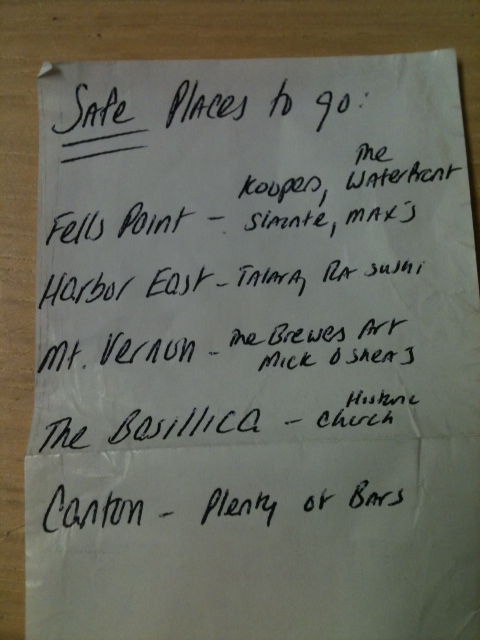 Safe Places to go:
Koopers, The Waterfront
Fells Point - Slainte, Max's
Harbor East - Talara, RA sushi
Mt. Vernon - The Brewes Art
Mick O Shea's
The Basillica - Historic Church
Canton - Plenty of Bars